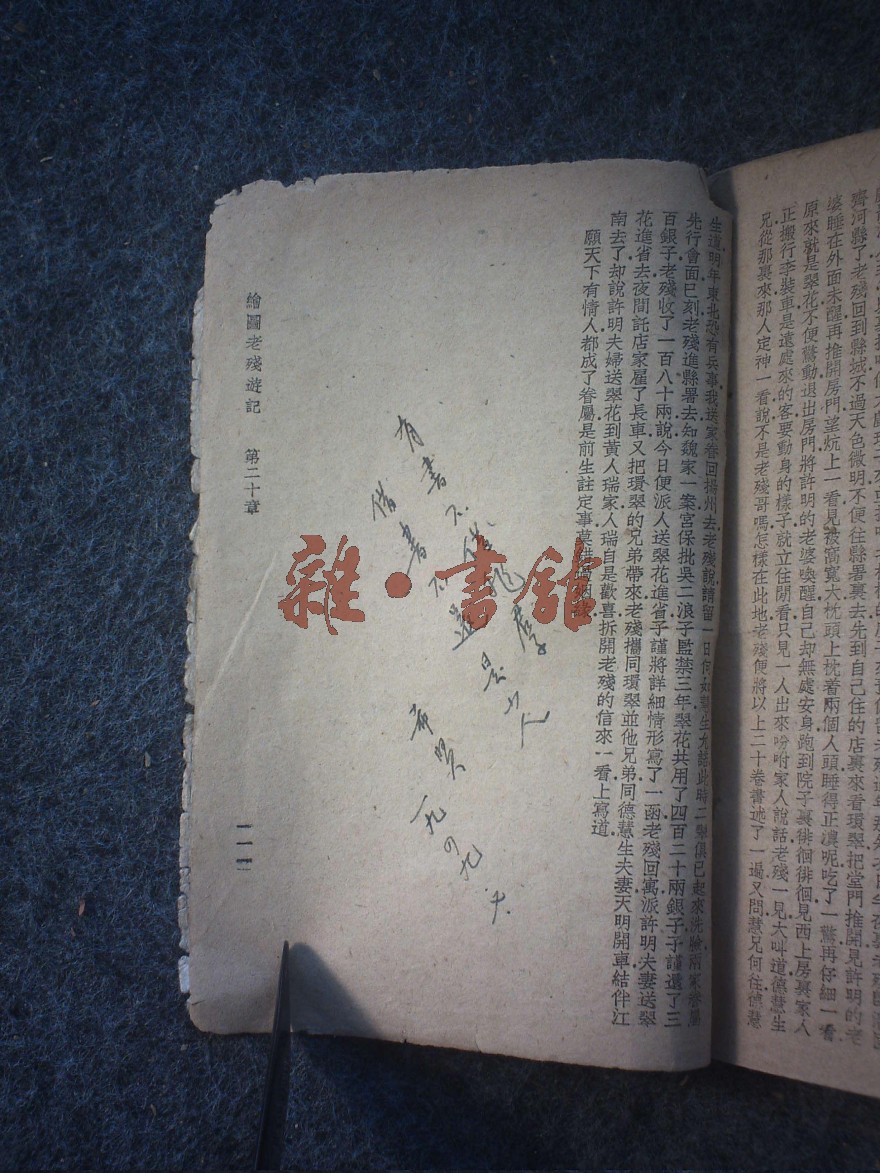 齊河縣了老殘回到縣城不過天色微明不便往縣署裏去先到自己住的店裏來看環翠把堂門推開見許明的老
婆睡在外面未醒再推開房門望炕上一看見被窩寬大枕頭上枕着兩個人頭睡得正濃呢吃了一驚再仔細一看
原來就是翠花不便驚動退出房門將許明的老婆喚醒自己却無處安身跑到院子裏徘徊徘徊見西上房裏家人
正搬行李裝車是遠處來的客要動身的樣子就立住閒看只見一人出來吩咐家人說話老殘一見大叫道德慧生
兄從那裏來那人定神一看說不是老殘哥嗎怎樣在此地老殘便將以上二十卷書述了一遍又問慧兄何往德慧
生道明年東北恐有兵事我送家眷回揚州去老殘說請留一日何如慧生允諾此時二翠俱已起來洗臉兩家眷屬
先行會面巳刻老殘進縣署去知魏家一案宮保批吳二浪子監禁三年翠花共用了四百二十兩銀子子謹還了三
百銀子老殘收了一百八十兩說今日便派人送翠花進省子謹將詳細情形寫了一函老殘回寓派許明夫妻送翠
花進省去夜間託店家雇了長車又把環翠的兄弟帶來老殘攜同環翠並他兄弟同德慧生夫妻天明開車結伴江
南去了却說許明夫婦送翠花到黃人瑞家人瑞自是歡喜拆開老殘的信來一看上寫道
願天下有情人都成了眷屬是前生註定事莫錯過姻緣
有書不借非君子
借書不還是小人
希賢 一九四九.十.
繪圖老殘遊記 第二十章
雜·書館